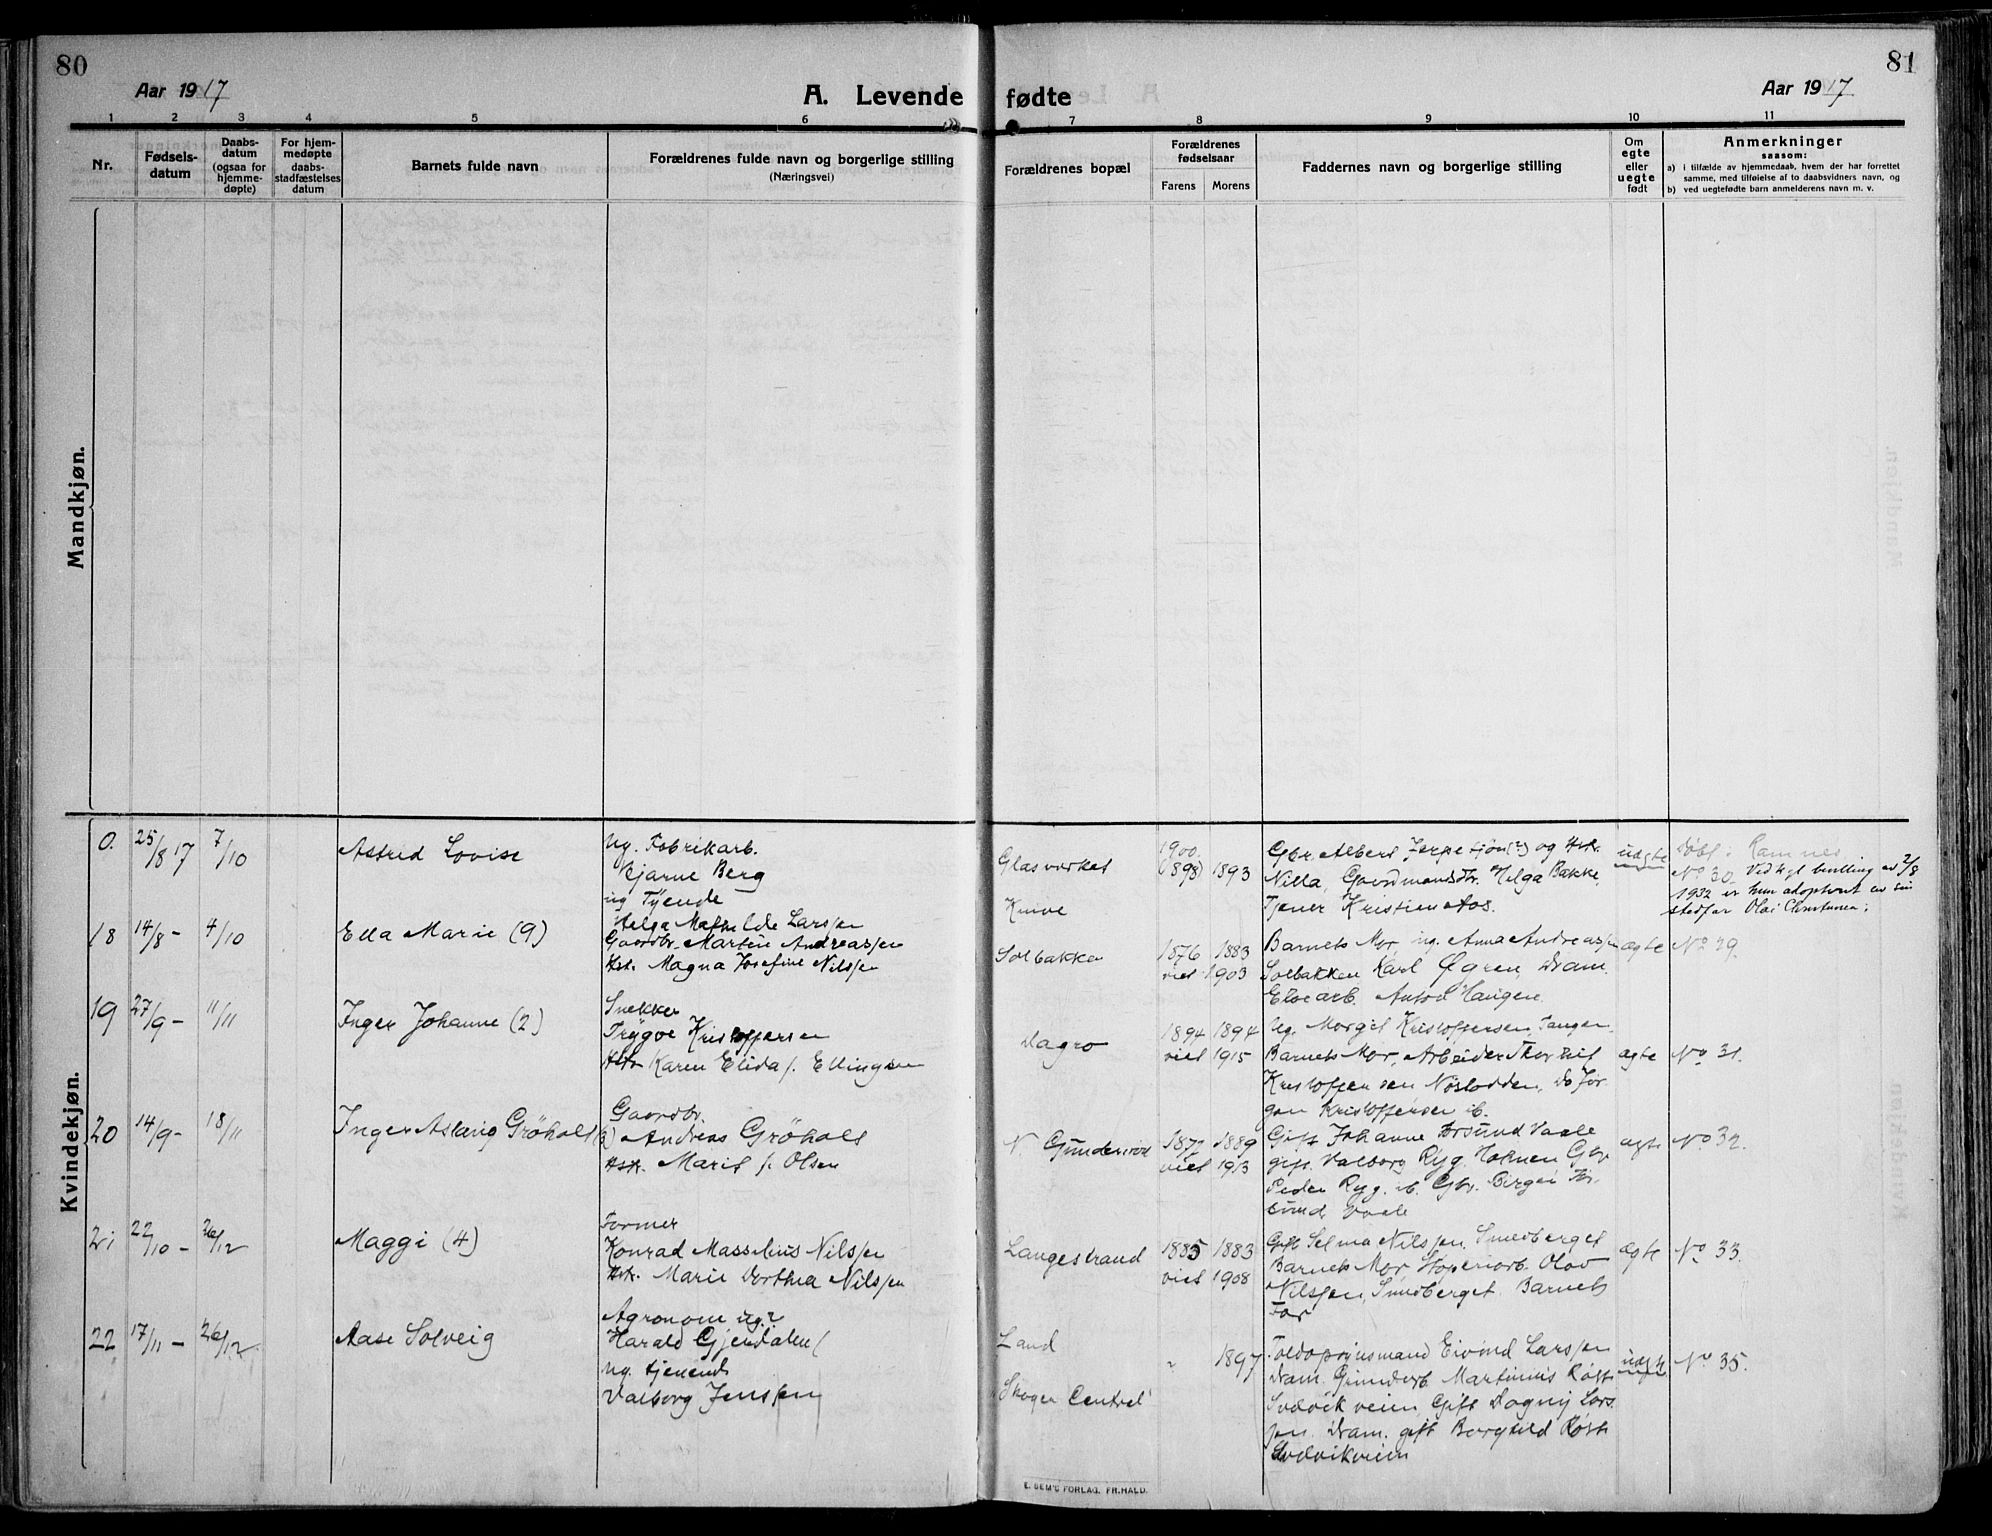 80
81
Aar 1917
A. Levende fødte
Aar 1917
1 2 3 4 5 6 7 8 9 10 11
Nr.
Fødsels-
datum
Daabs-
datum
(ogsaa for
hjemme-
døpte)
For hjem-
medøpte
daabs-
stadfæstelses
datum
Barnets fulde navn
Forældrenes fulde navn og borgerlige stilling
(Næringsvei)
Forældrenes bopæl
Forældrenes
fødselsaar
Farens Morens
Faddernes navn og borgerlige stilling
Om
egte
eller
uegte
født
Anmerkninger
saasom:
a) i tilfælde av hjemmedaab, hvem der har forrettet
samme, med tilføielse af to daabsvidners navn, og
b) ved uegtefødte barn anmelderens navn m. v.
Mandkjøn.
Kvindekjøn.
0. 25/8 17 7/10
Astrid Lovise
Ug. Fabrikarb.
Bjarne Berg
ug Tjende
Helga Mathilde Larssen
Glasverket
Knive
1900.
(1898) 1893
Gbr. Albert Jerpetjøn(?) og Hsk.
Nilla, Gaardmandsdtr. Helga Bakke,
Tjener Kristien Aos.
uegte
døbt: Ramnes
No 30. Ved kgl bevilling av 2/8
1932 er hun adoptert av sin
stedfar Olai Christensen;
18 14/8 - 4/10
Ella Marie (9)
Gaardbr. Martin Andreassen
Hst. Magna Josefine Nilssen
Solbakken
1876 1883
viet 1903
Barnets Mor, ug. Anna Andreassen
Solbakken Karl Øgren, Dram.
Elvearb. Anton Haugen
ægte
No 29.
19 27/9 - 11/11
Inger Johanne (2)
Snekker
Trygve Kristoffersen
Hstr Karen Elida f. Ellingsen
Dagro
1894 1894
viet 1915
Ug. Margit Kristoffersen, Tangen.
Barnets Mor, Arbeider Thorleif
Kristoffersen Nøstodden, Do Jør
gen Kristoffersen ib.
ægte
No 31.
20 14/9 - 18/11
Inger Aslaug Gröholt
Gaardbr.
Andreas Gröholt
Hst. Marit f. Olsen
N. Gunderud
1877 1889
viet 1913
Gift Johanne Forsund Vaale
gift. Valborg Ryg. Haknen Gbr
Peder Ryg. ib. Gbr. Birger For
sund Vaale
ægte
No 32.
21 22/10 - 26/12
Maggi (4)
Former
Konrad Masselius Nilssen
Hst. Marie Dorthea Nilssen
Langestrand
1885 1883
viet 1908
Gift Selma Nilssen, Smedberget
Barnets Mor, Støperiarb. Olav
Nilssen, Smedberget. Barnets
Far
ægte
No 33.
22 17/11 - 26/12
Aase Solveig
Agronom ug.?
Harald Gjerdalen
ug. tjenend
Valborg Jenssen
Land
Skoger Central
" 1897
Toldopsynsmand Eivind Larssen
Dram. Grundarb. Martinius Røst
Svelvikveien Gift Dagny Lars
sen, Dram. gift Borghild Røst
Svelvikveien
uegte
No 35.
E. SEM'S FORLAG. FR.HALD.